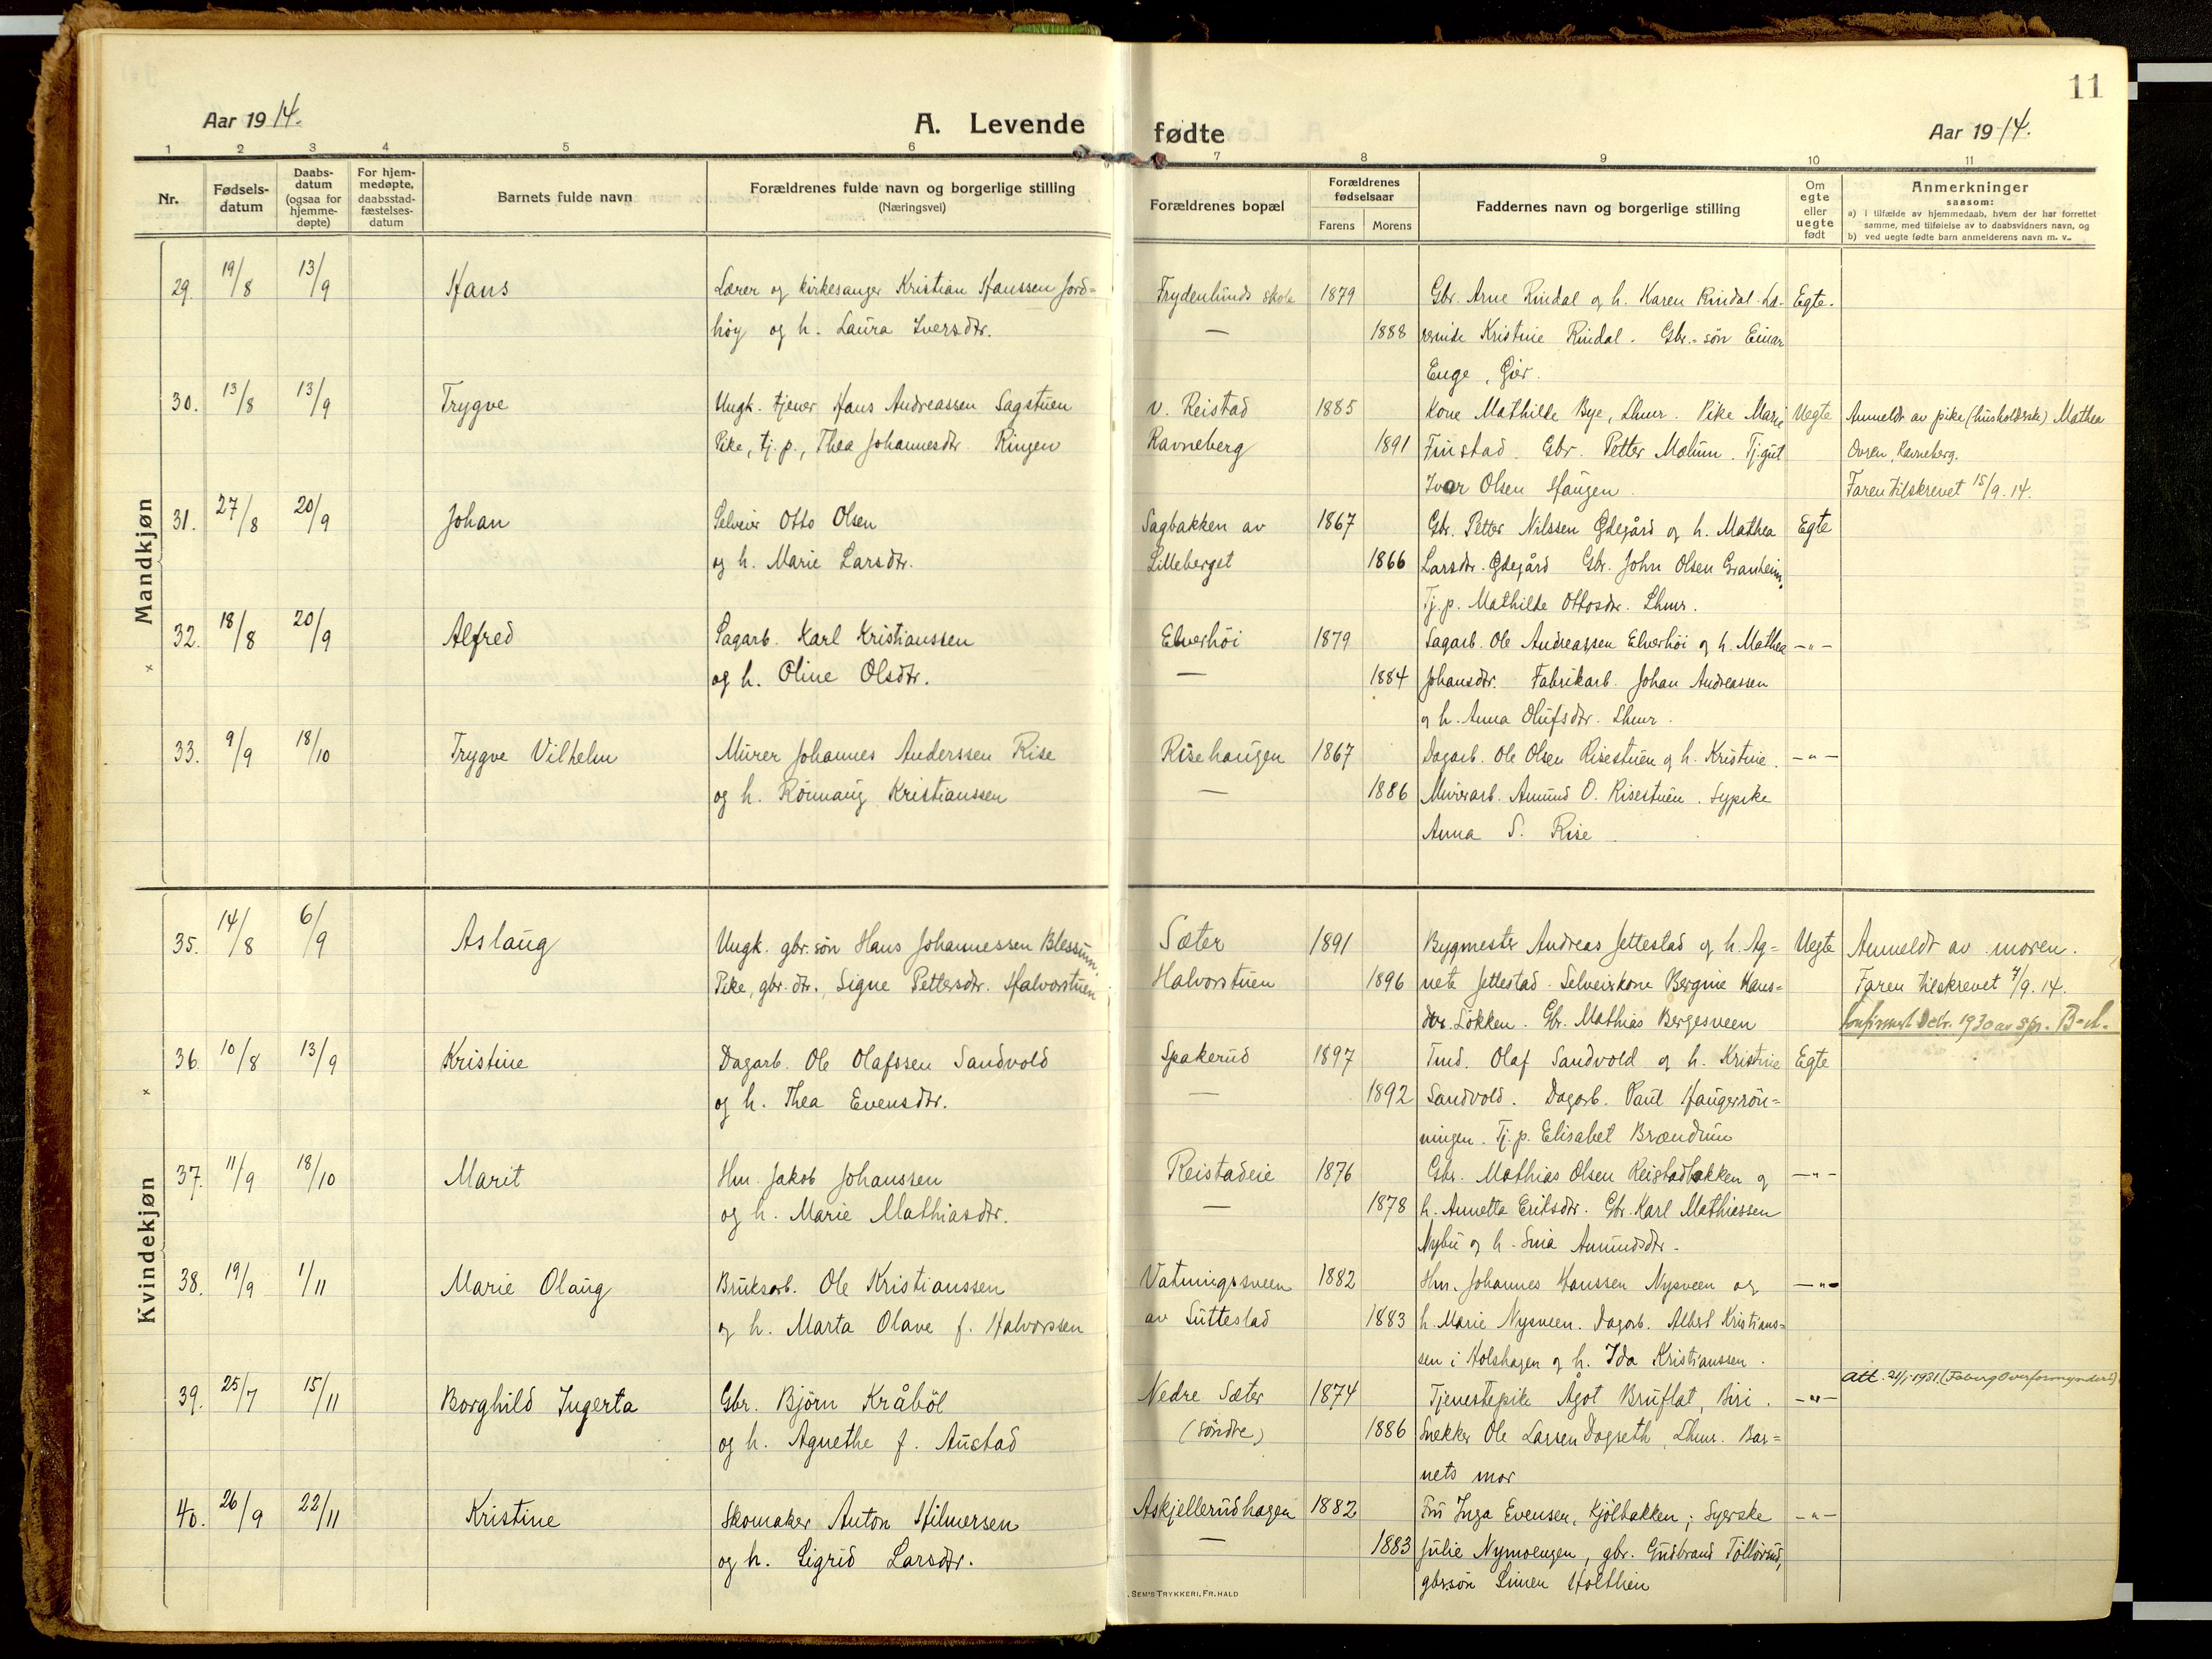 11
Aar 1914.
A. Levende
fødte
Aar 1914.
1 2 3 4 5 6 7 8 9 10 11
Nr.
Fødsels-
datum
Daabs-
datum
(ogsaa for
hjemme-
døpte)
For hjem-
medøpte,
daabsstad-
fæstelses-
datum
Barnets fulde navn
Forældrenes fulde navn og borgerlige stilling
(Næringsvei)
Forældrenes bopæl
Forældrenes
fødselsaar
Farens Morens
Faddernes navn og borgerlige stilling
Om
egte
eller
uegte
født
Anmerkninger
saasom:
a) i tilfælde av hjemmedaab, hvem der har forrettet
samme, med tilføielse av to daabsvidners navn, og
b) ved uegte fødte barn anmelderens navn m. v.
Mandkjøn
29. 19/8 13/9 Hans Lærer og kirkesanger Kristian Hanssen Jord= Frydenlunds skole 1879 Gbr. Arne Rindal og h. Karen Rindal. Læ- Egte.
høy og h. Laura Iversdtr. — 1888 rerinde Kristine Rindal. Gbr.-søn Einar
Enge, Gjør.
30. 13/8 13/9 Trygve Ungk. tjener Hans Andreassen Sagstuen v. Reistad 1885 Kone Mathilde Bye, Lhmr. Pike Marie Uegte Anmeldt av pike (husholderske) Mathea
Pike, tj.p., Thea Johannesdtr. Ringen Ravneberg 1891 Finstad. Gbr. Petter Molum. Tj.gut Ovren, Ravneberg.
Ivar Olsen Haugen. Faren tilskrevet 15/9.14.
31. 27/8 20/9 Johan Selveier Otto Olsen Sagbakken av 1867 Gbr. Petter Nilssen Ødegård og h. Mathea Egte
og h. Marie Larsdtr. Lilleberget 1866 Larsdtr. Ødegård Gbr. John Olsen Granheim.
Tj.p. Mathilde Ottosdtr. Lhmr.
32. 18/8 20/9 Alfred Sagarb. Karl Kristianssen Elverhöi 1879 Sagarb. Ole Andreassen Elverhöi og h. Mathea —"—
og h. Oline Olsdtr. — 1884 Johansdtr. Fabrikarb. Johan Andreassen
og h. Anna Olufsdtr. Lhmr.
33. 9/9 18/10 Trygve Vilhelm Murer Johannes Anderssen Rise Risehaugen 1867 Dagarb. Ole Olsen Risestuen og h. Kristine. —"—
og h. Rönnaug Kristianssen — 1886 Murerarb. Amund O. Risestuen. Sypike
Anna S. Rise
Kvindekjøn
35. 14/8 6/9 Aslaug Ungk. gbr.søn Hans Johannessen Blessum. Sæter 1891 Bygmester Andreas Jettestad og h. Ag= Uegte Anmeldt av moren.
Pike, gbr.dtr., Signe Pettersdtr. Halvorstuen Halvorstuen 1896 nete Jettestad. Selveierkone Bergine Hans= Faren tilskrevet 7/9.14.
dtr. Løkken. Gbr. Mathias Bergesveen
36. 10/8 13/9 Kristine Dagarb. Ole Olafssen Sandvold Spakerud 1897 Tmd. Olaf Sandvold og h. Kristine Egte
og h. Thea Evensdtr. — 1892 Sandvold. Dagarb. Paul Haugerrön=
ningen. Tj.p. Elisabet Brændum
37. 11/9 18/10 Marit Hm. Jakob Johanssen Reistadeie 1876 Gbr. Mathias Olsen Reistadbakken og —"—
og h. Marie Mathiasdtr. — 1878 h. Annetta Eriksdtr. Gbr. Karl Mathiassen
Nybu og h. Sina Amundsdtr.
38. 19/9 1/11 Marie Olaug Bruksarb. Ole Kristianssen Vatningssveen 1882 Hm. Johannes Hanssen Nysveen og —"—
og h. Marta Olave f. Halvorssen av Suttestad 1883 h. Marie Nysveen. Dagarb. Albert Kristians=
sen i Holshagen og h. Ida Kristianssen.
39. 25/7 15/11 Borghild Ingerta Gbr. Björn Kråböl Nedre Sæter 1874 Tjenestepike Ågot Bruflat, Biri. —"— Att. 21/1-1931. (Faberg Overformynderi)
og h. Agnethe f. Austad (söndre) 1886 Snekker Ole Larsen Dagseth, Lhmr. Bar=
nets mor
40. 26/9 22/11 Kristine Skomaker Anton Hilmersen Askjellerudhagen 1882 Fru Inga Evensen, Kjölbakken; Syerske —"—
og h. Sigrid Larsdtr. — 1883 Julie Nymoengen, gbr. Gudbrand Tollörud,
gbrsøn Simen Holthein
SEM'S TRYKKERI, FR.HALD